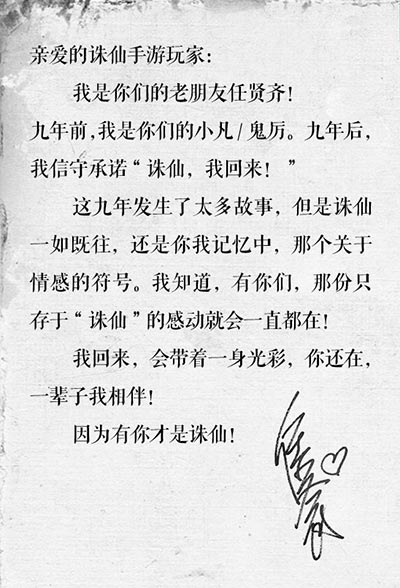 亲爱的诛仙手游玩家：
我是你们的老朋友任贤齐！
九年前，我是你们的小凡/鬼厉。九年后，
我信守承诺“诛仙，我回来！”
这九年发生了太多故事，但是诛仙
一如既往，还是你我记忆中，那个关于
情感的符号。我知道，有你们，那份只
存于“诛仙”的感动就会一直都在！
我回来，会带着一身光彩，你还在，
一辈子我相伴！
因为有你才是诛仙！
任贤齐